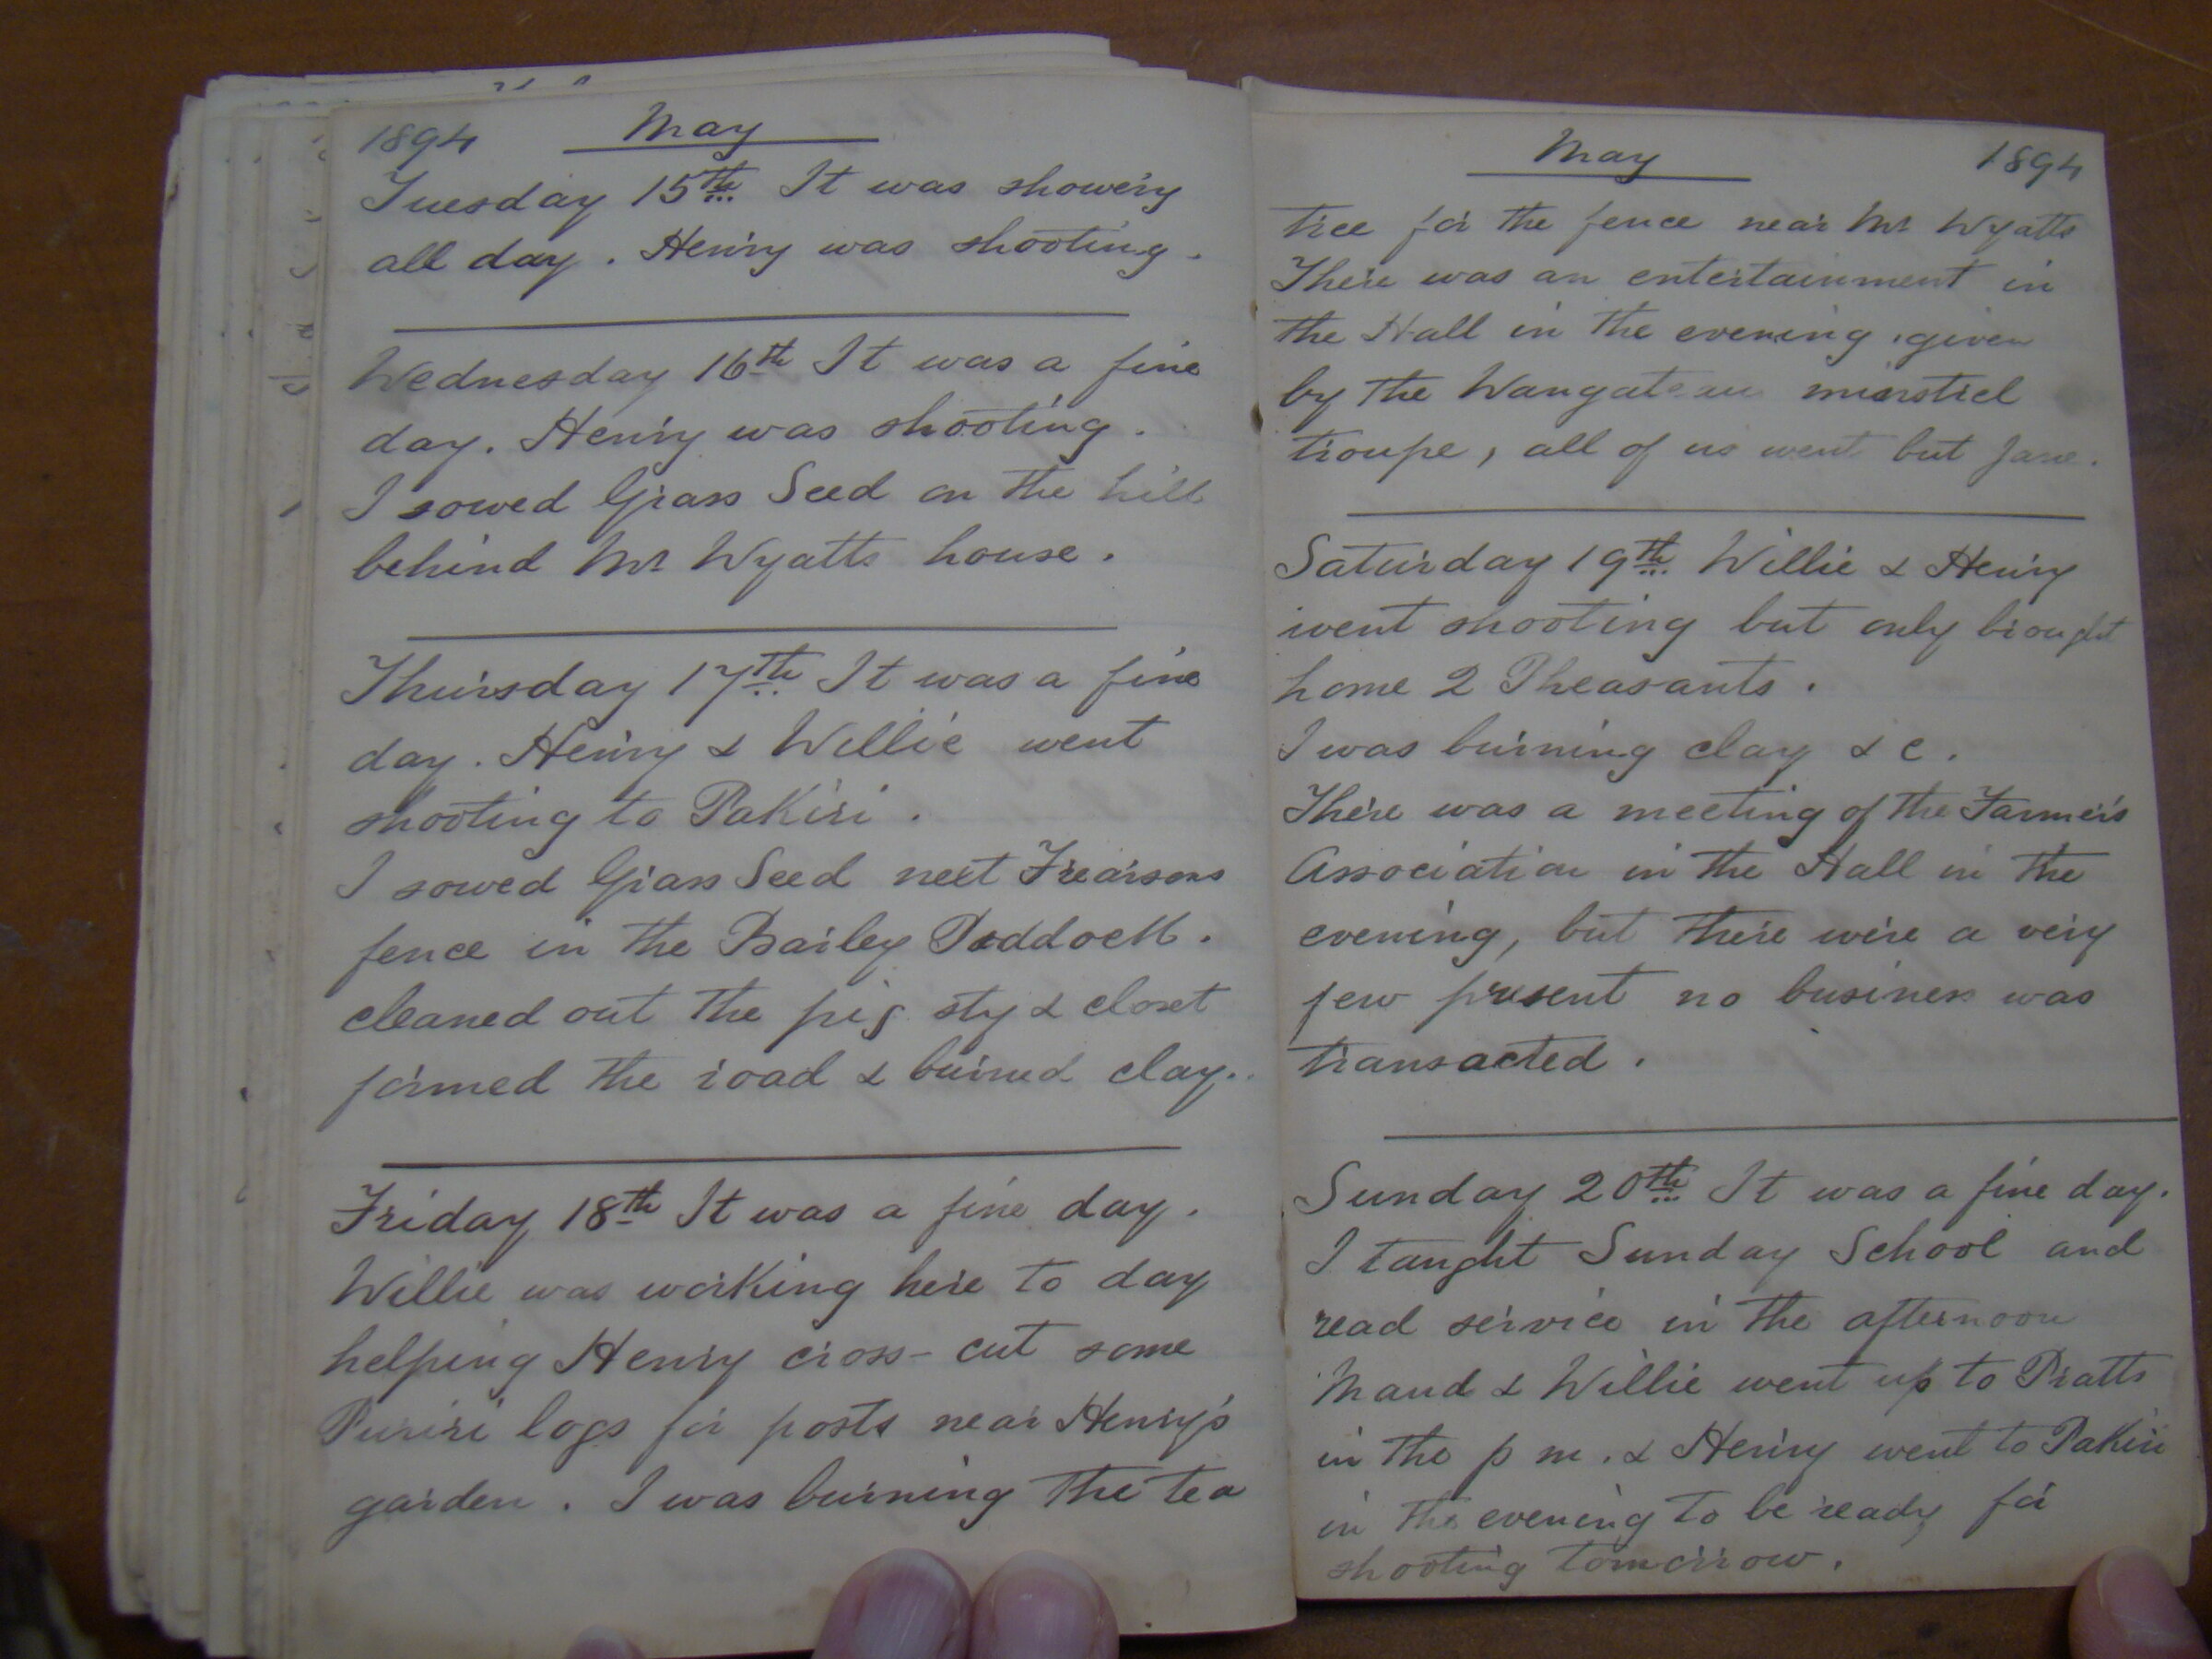 1894 May
Tuesday 15th It was showery
all day. Henry was shooting.
Wednesday 16th It was a fine
day. Henry was shooting.
I sowed Grass Seed on the hill
behind Mr Wyatts house.
Thursday 17th It was a fine
day. Henry & Willie went
shooting to Pakiri.
I sowed Grass Seed next Frearsons
fence in the Barley Paddock.
cleaned out the pig sty & closet
formed the road & burned clay.
Friday 18th It was a fine day.
Willie was working here to day
helping Henry cross-cut some
Puriri logs for posts near Henry's
garden. I was burning the tea
May 1894
tree for the fence near Mr Wyatts
There was an entertainment in
the Hall in the evening, given
by the Wangateau minstrel
troupe, all of us went but Jane.
Saturday 19th Willie & Henry
went shooting but only brought
home 2 Pheasants.
I was burning clay & c.
There was a meeting of the Farmers
Association in the Hall in the
evening, but there were a very
few present no business was
transacted.
Sunday 20th It was a fine day.
I taught Sunday School and
read service in the afternoon
Maud & Willie went up to Pratts
in the p m. & Henry went to Pakiri
in the evening to be ready for
shooting tomorrow.